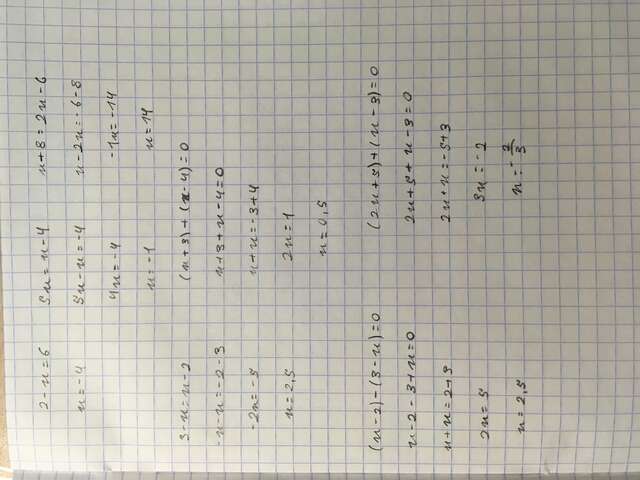 2-x=6
x=-4
5x=x-4
5x-x=-4
4x=-4
x=-1
x+8=2x-6
x-2x=-6-8
-1x=-14
x=14
3-x=x-2
-x-x=-2-3
-2x=-5
x=2,5
(x+3)+(x-4)=0
x+3+x-4=0
x+x=-3+4
2x=1
x=0,5
(x-2)-(3-x)=0
x-2-3+x=0
x+x=2+3
2x=5
x=2,5
(2x+5)+(x-3)=0
2x+5+x-3=0
2x+x=-5+3
3x=-2
x=-2/3